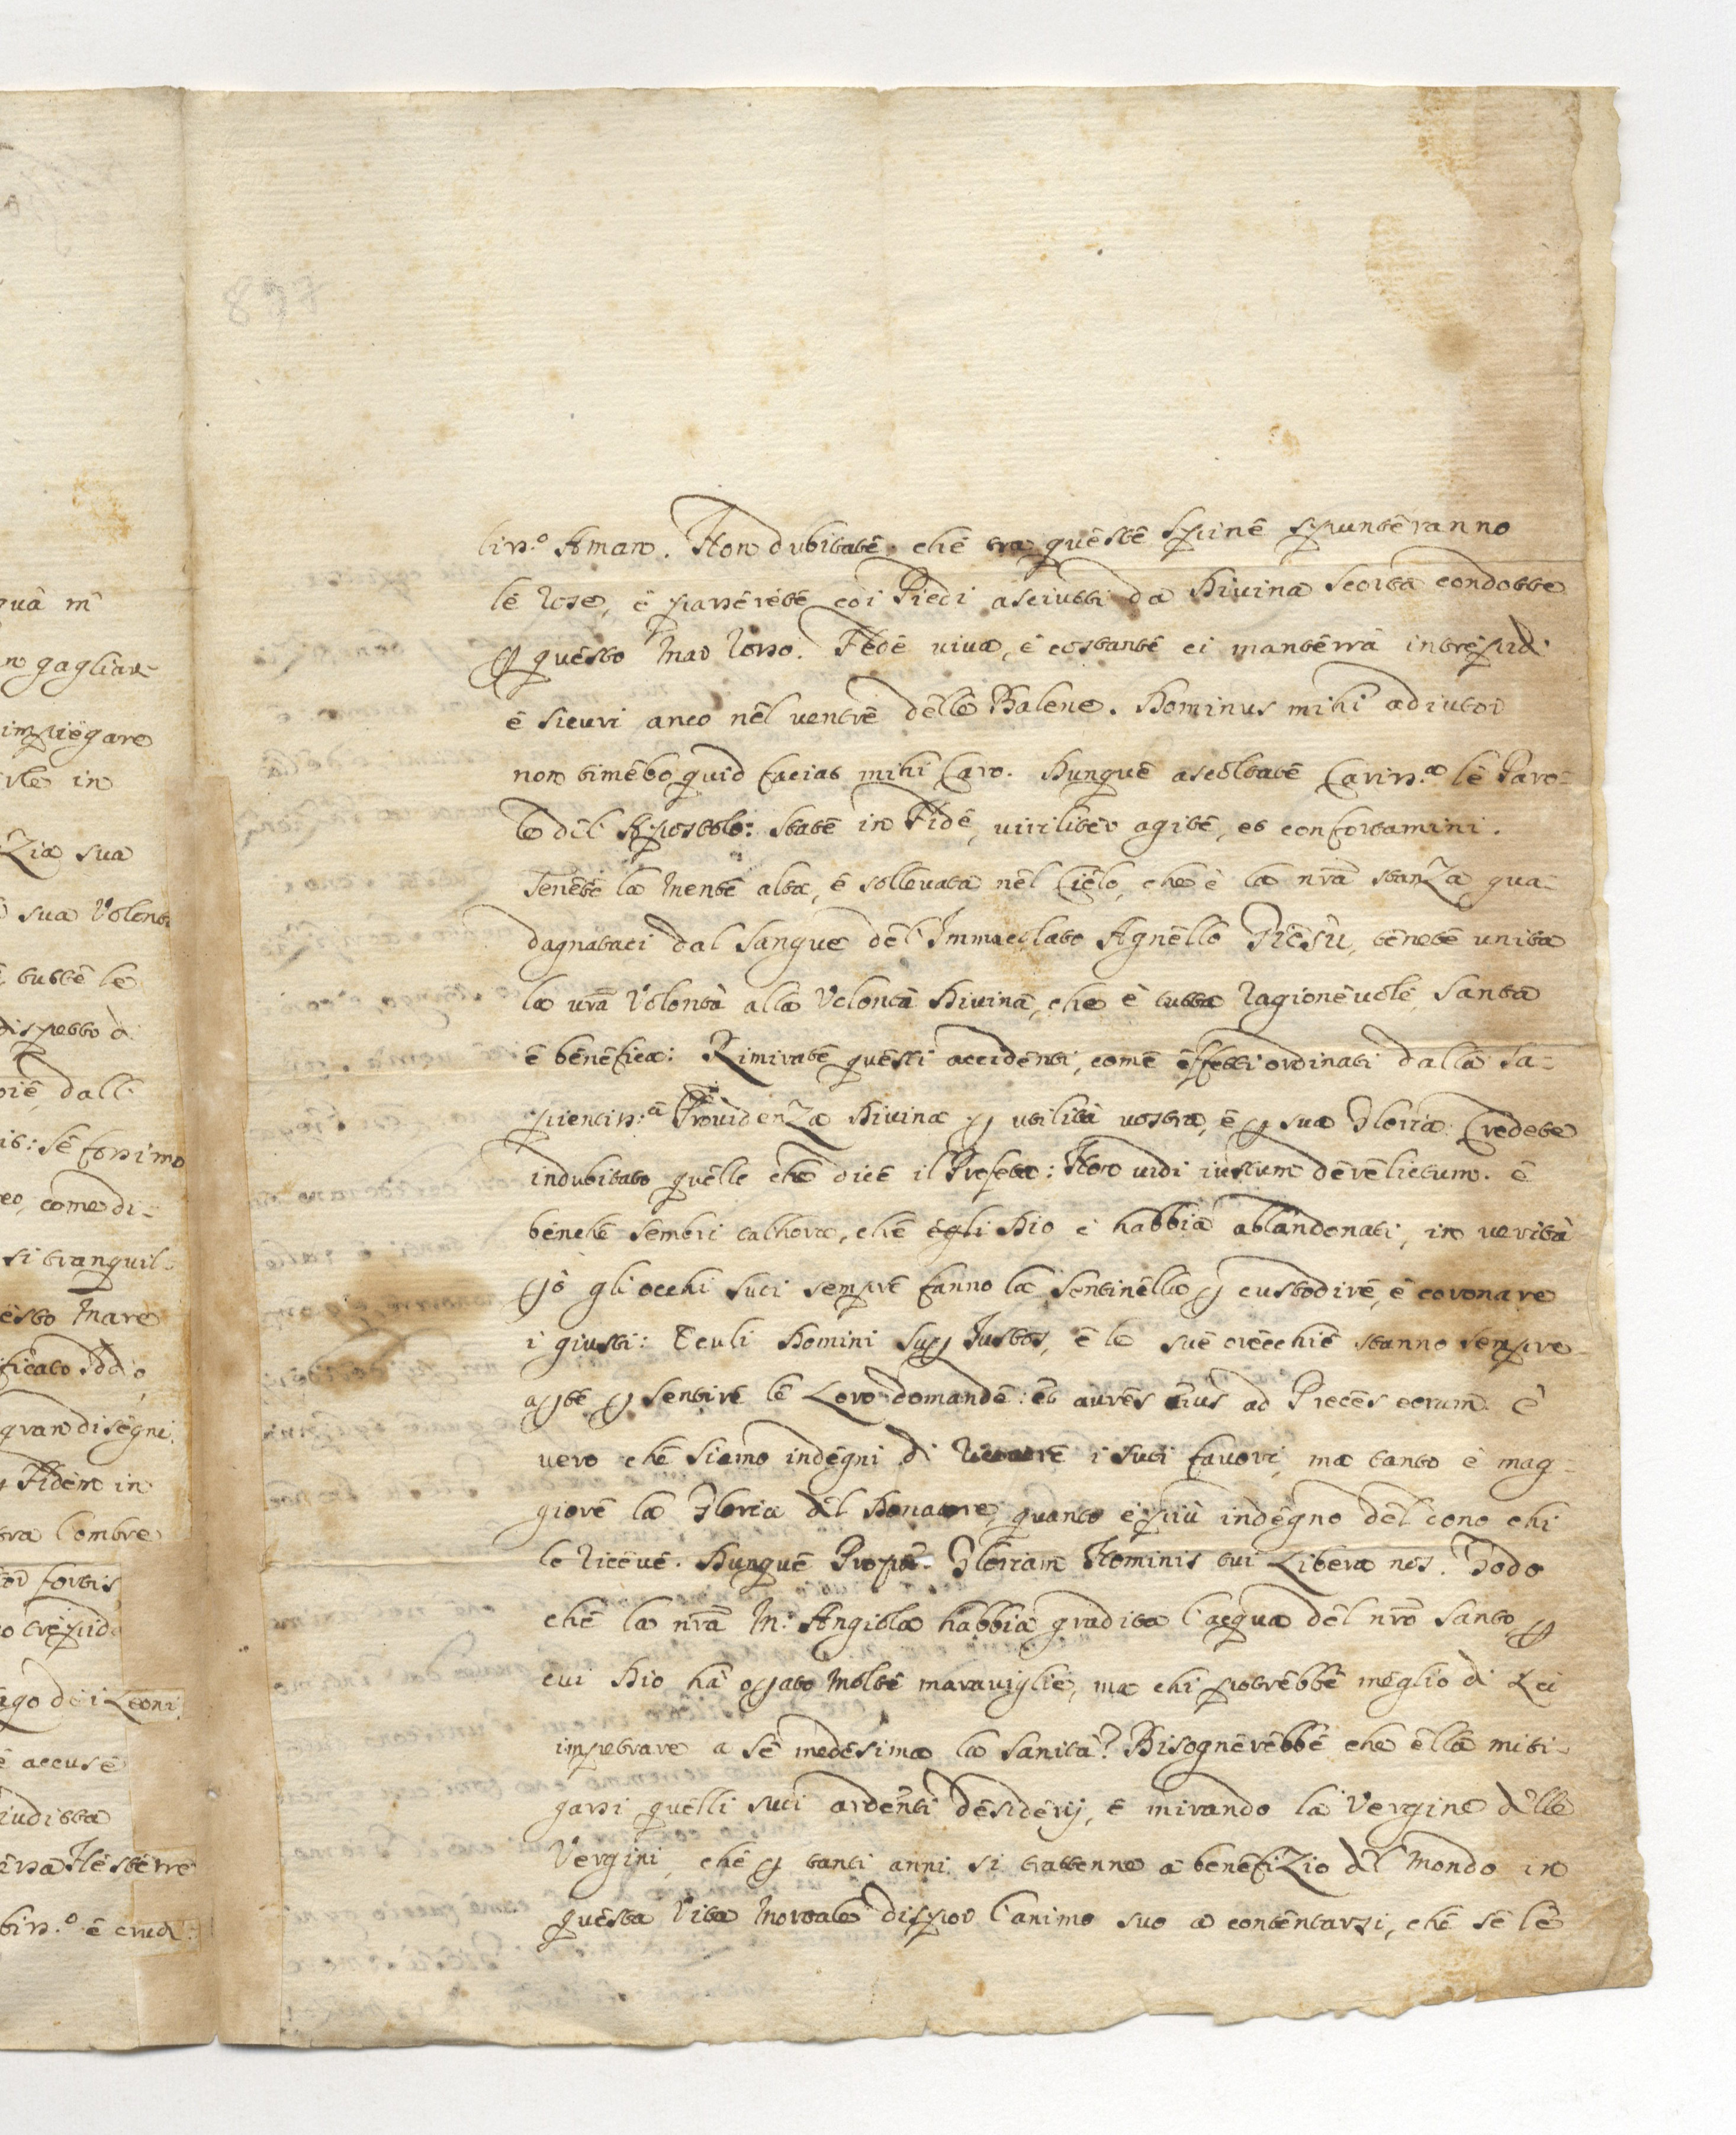 quâ m̂
n gagliar-
impiegare
rle in
Zia sua
è sua Volont
tutte le
dispetto d
dall
it: se fossimo
eo, come di-
si tranquil-
esto Mare
ificato Iddio,
gran disegni
Fidem in
tra l'ombre
fortis
trepid
ago dei Leoni
è accuse
iuditta
issa Hesterre
tiss.º è crud
837
tiss.º Aman. Non dubitate, che tra queste spine spunteranno
le rose, è passerete coi Piedi asciutti da Divina scorta condotte
ꝑ questo Mar rosso. Fede viva, è costante ci manterrà intrepidi
è sicuri anco nel ventre delle Balene. Dominus mihi adiutor
non timebo quid faciat mihi Caro. Dunque ascoltate Cariss.ᵉ le Paro-
le del Apostolo: state in Fide, viriliter agite, et confortamini.
Tenete la Mente alta, è sollevata nel Cielo, che è la nrã stanza gua-
dagnataci dal Sangue del Immacolato Agnello Giesù, tenete unita
la vrã Volontà alla Volontà Divina, che è tutta Ragionevole, Santa
è benefica: Rimirate questi accidenti, come effetti ordinati dalla Sa-
pientiss.ᵃ Providenza Divina ꝑ utilità vostra, è ꝑ sua Gloria. Credete
indubitato quello che dice il Profeta: Non vidi iustum derelictum. è
benche sembri talhora, che egli Dio ci habbia abbandonati, in verità
ꝑò gli occhi suoi sempre fanno la sentinella ꝑ custodire, è coronare
i giusti: Oculi Domini suꝑ Iustos, è le sue orecchie stanno sempre
aꝑte ꝑ sentire le Loro domande: et aures eius ad Preces eorum. è
vero che siamo indegni di ricevere i suoi favori, ma tanto è mag-
giore la Gloria del Donatore, quanto è più indegno del dono chi
lo riceve. Dunque Propter Gloriam Nominis tui Libera nos. Godo
che la nrã M: Angiola habbia gradita l'acqua del nrõ Santo, ꝑ
cui Dio hà oꝑato Molte maraviglie, ma chi potrebbe meglio di Lei
impetrare a se medesima la sanità? Bisognerebbe che ella miti-
gassi quelli suoi ardenti desiderij, è mirando la Vergine delle
Vergini, che ꝑ tanti anni si trattenne a benefizio del Mondo in
questa Vita Mortale dispor l'animo suo a contentarsi, che se le